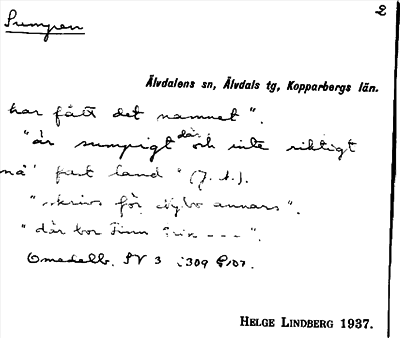 2
Sumpen
Älvdalens sn, Älvdals tg, Kopparbergs län.
har fått det namnet".
"är sumpigt där och inte riktigt
nå' fast land" (J. A.).
"skrivs för annars".
"där bor Finn - - -".
Omedelb. SV 3
HELGE LINDBERG 1937.